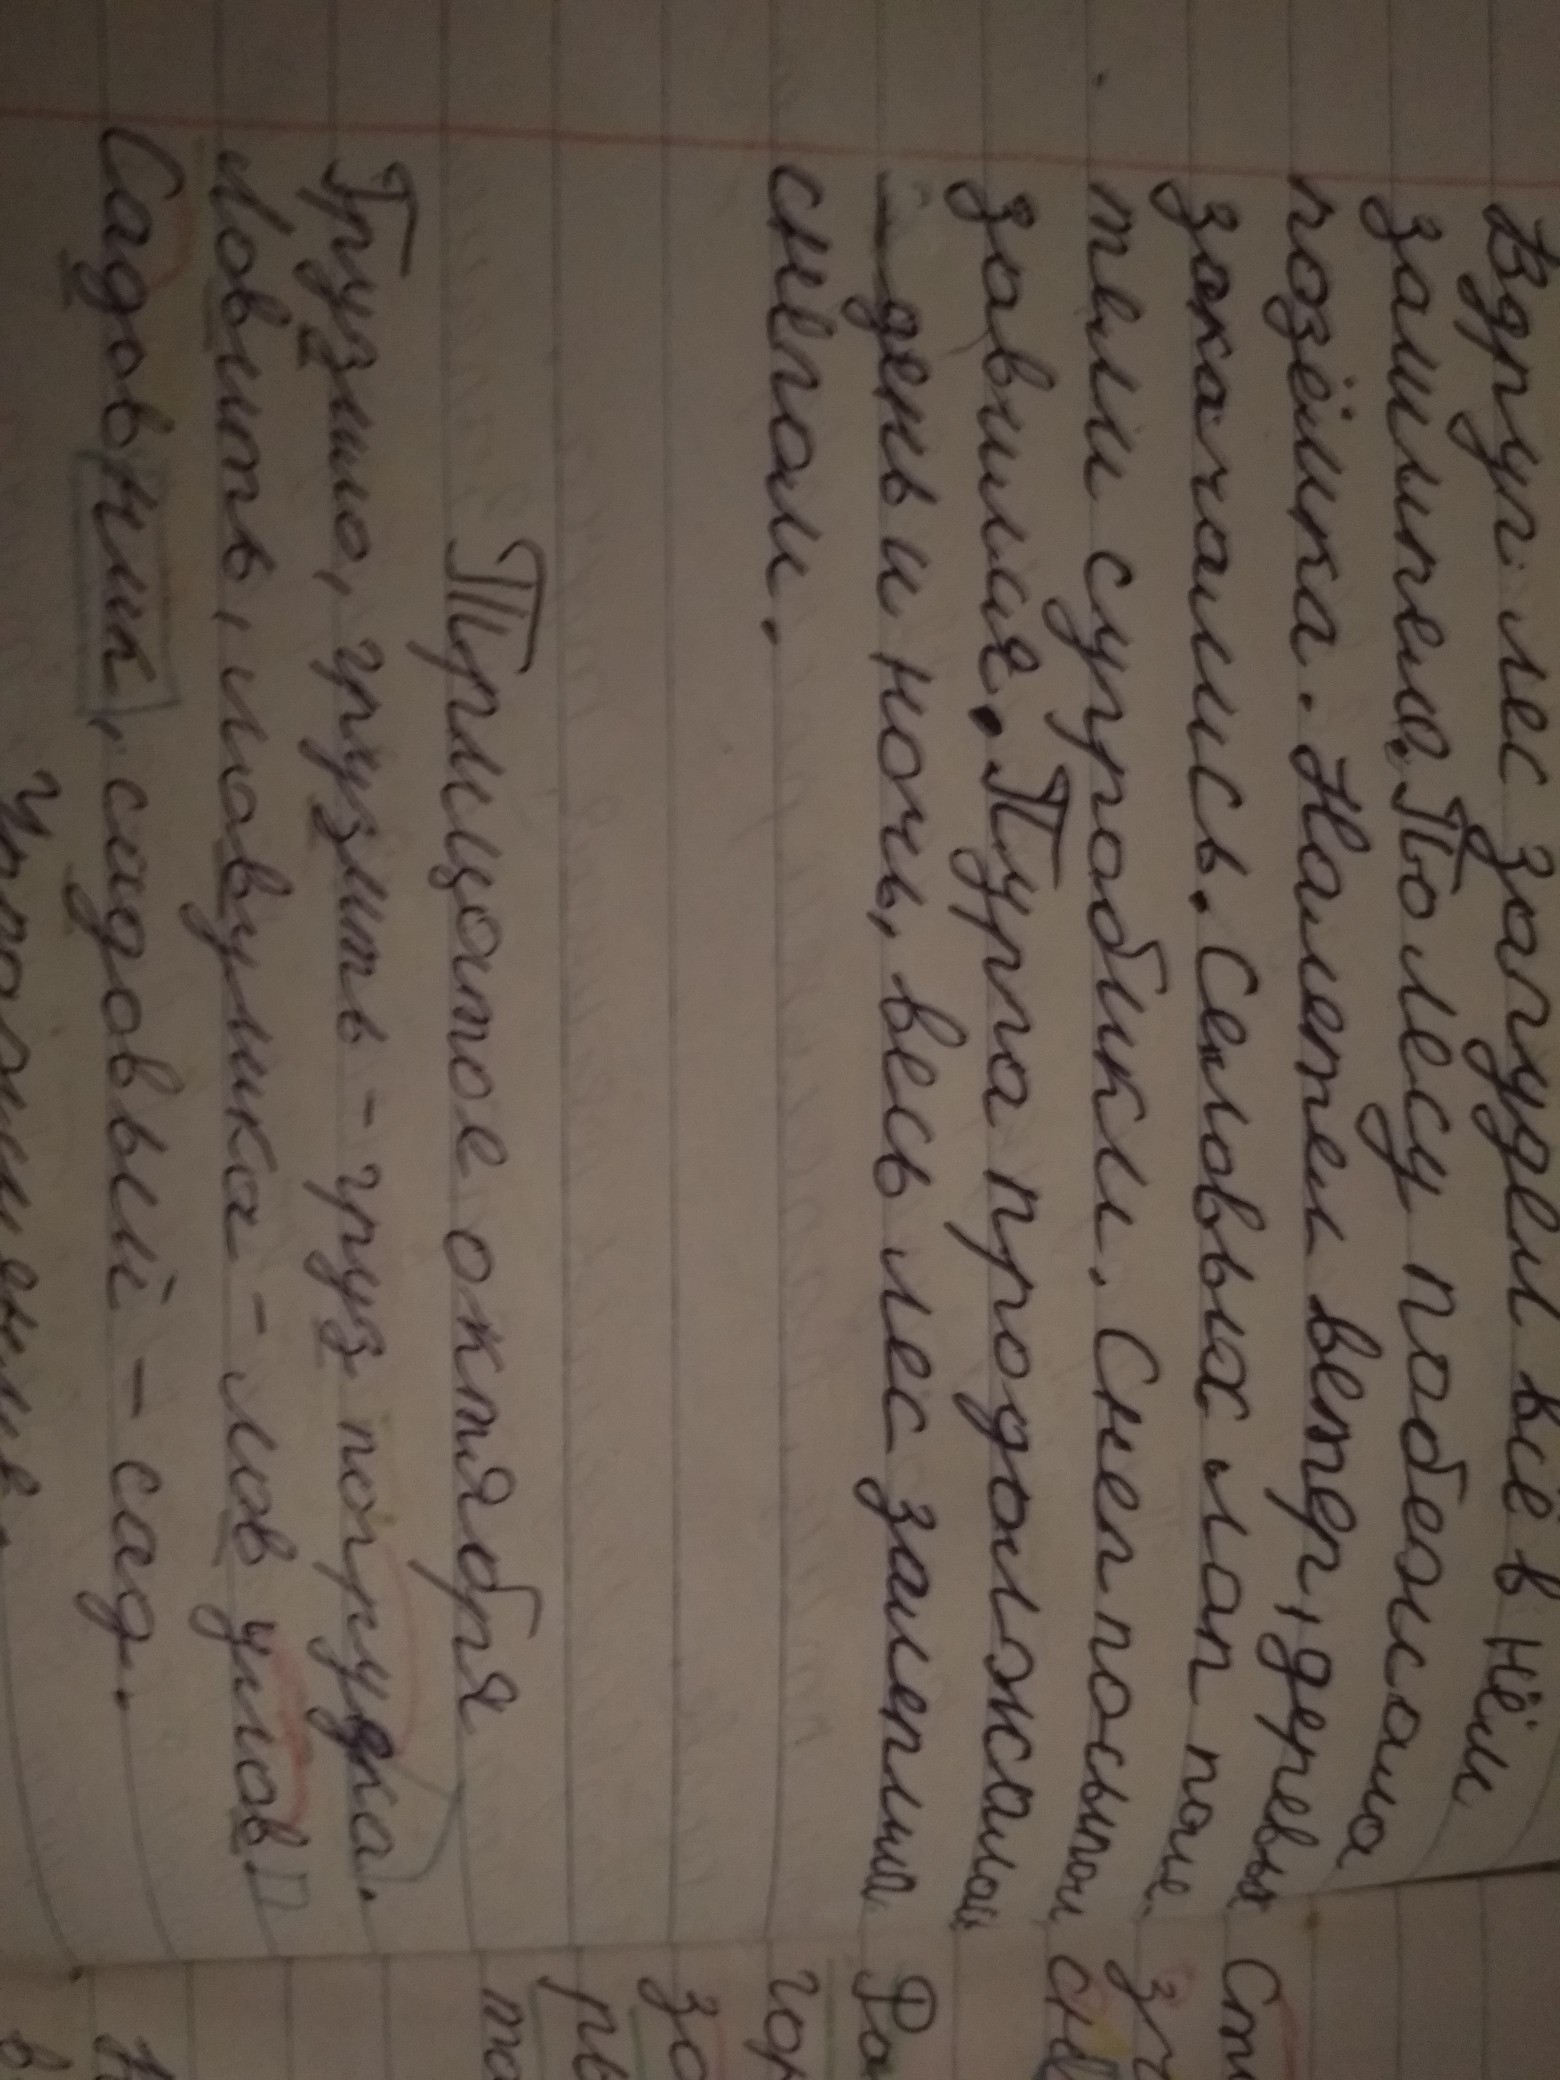 Вдруг лес загудел всё в нём
закипело. По лесу побежала
позёмка. Налетел ветер, деревья
закачались. С еловых лап поле-
тели сугробики. Снег посыпал
завилае. Пурга продолжалась
день и ночь, весь лес залепила
снегом.
Трицатое октября
Грузило, грузить - груз погрузка.
Ловить, ловушка - лов улов.
Садовник, садовый - сад.
Упражнение